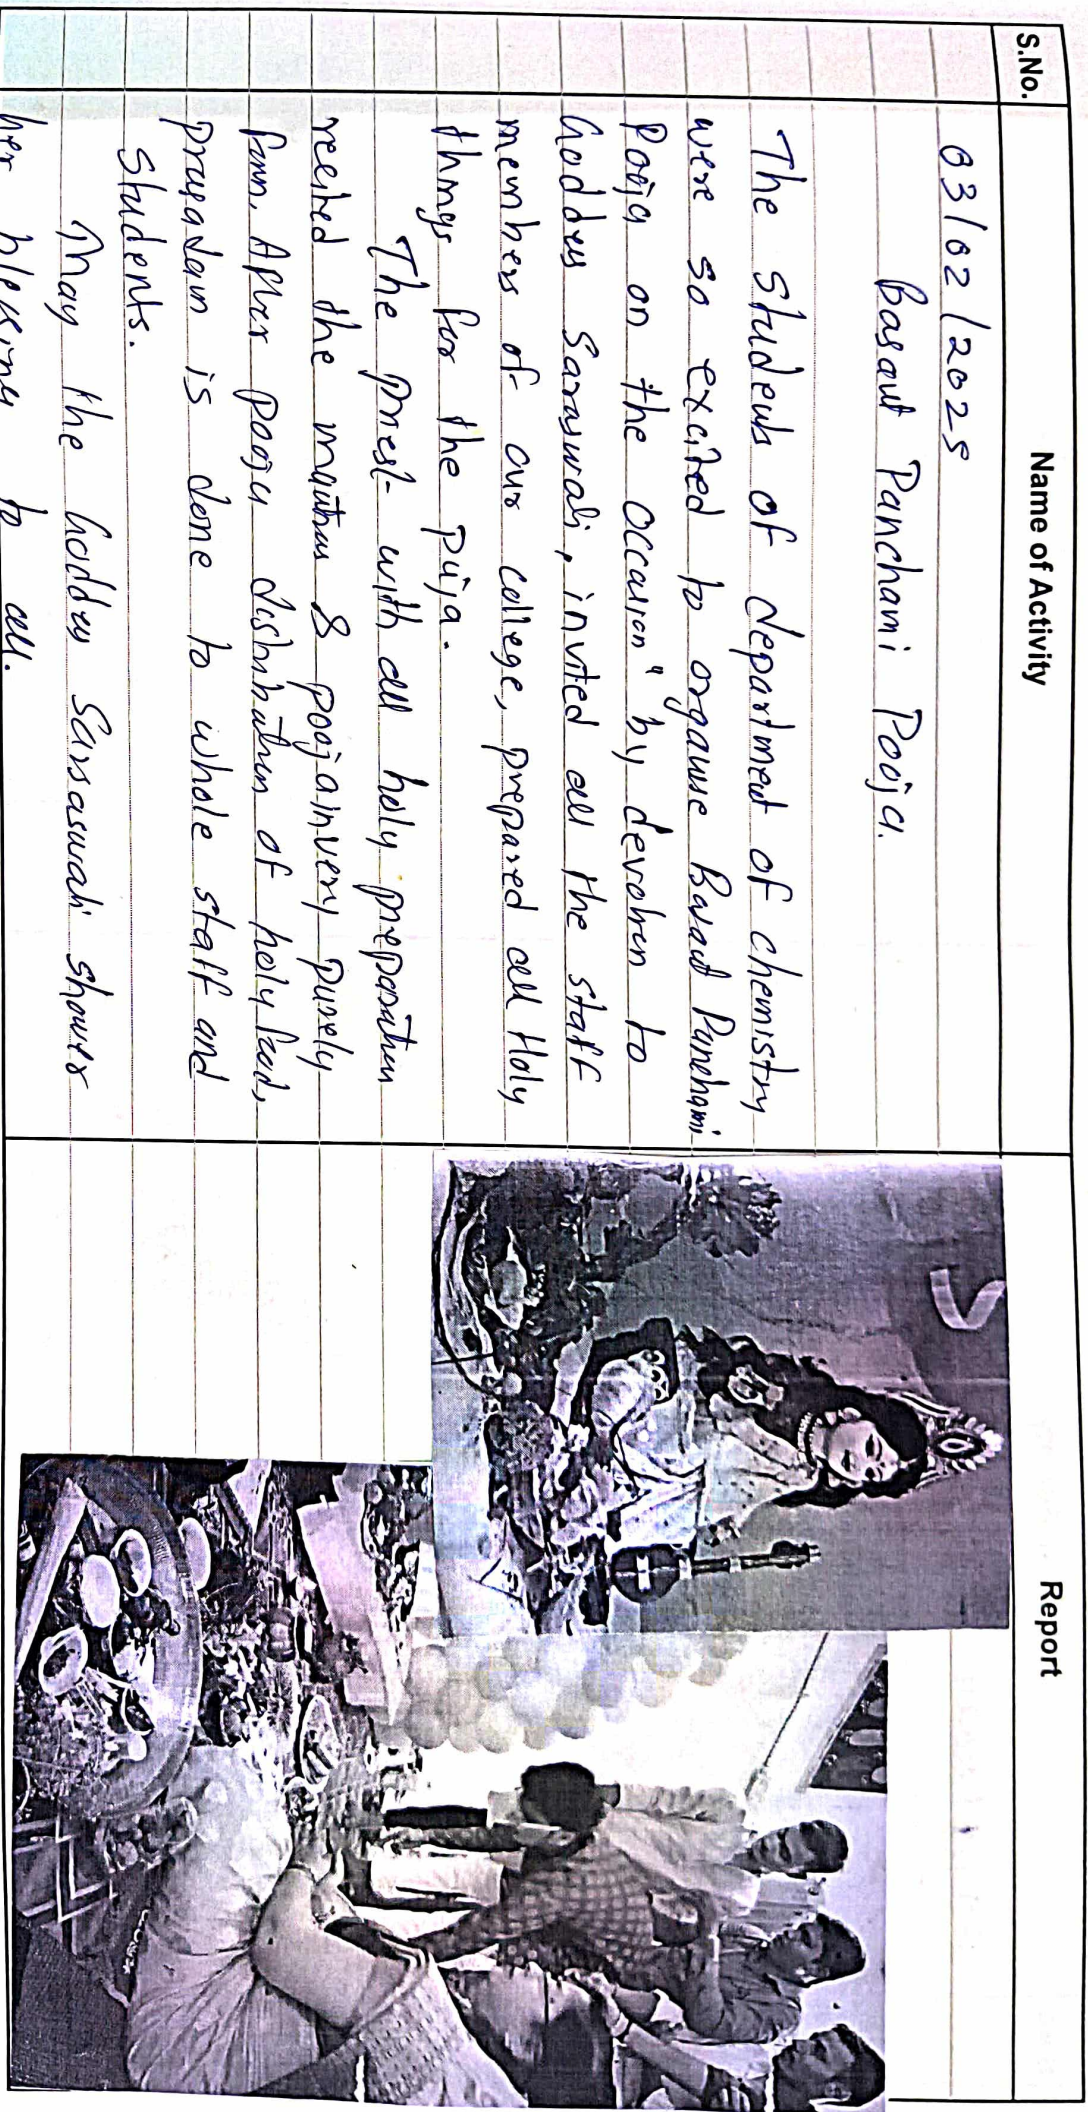 S.No.
Name of Activity
Report
03/02/2025
Basant Panchami Pooja.
The Students of department of chemistry
were so excited to organise Basant Panchami
Pooja on the occasion" by devotion to
Goddess Saraswati, invited all the staff
members of our college, prepared all Holy
things for the Puja.
The priest with all holy preparation
recited the mantras & pooja in very purely
form. After pooja distribution of holy food,
prasadam is done to whole staff and
Students.
May the Goddess Sarsaswati shower
her blessings to all.